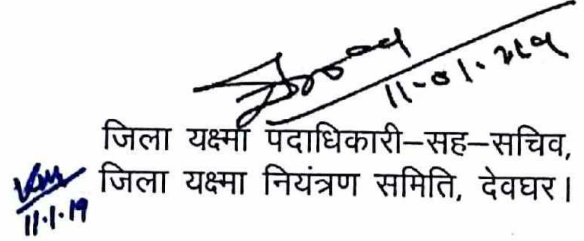 11-01-2019
जिला यक्ष्मा पदाधिकारी–सह–सचिव,
जिला यक्ष्मा नियंत्रण समिति, देवघर।
11.1.19